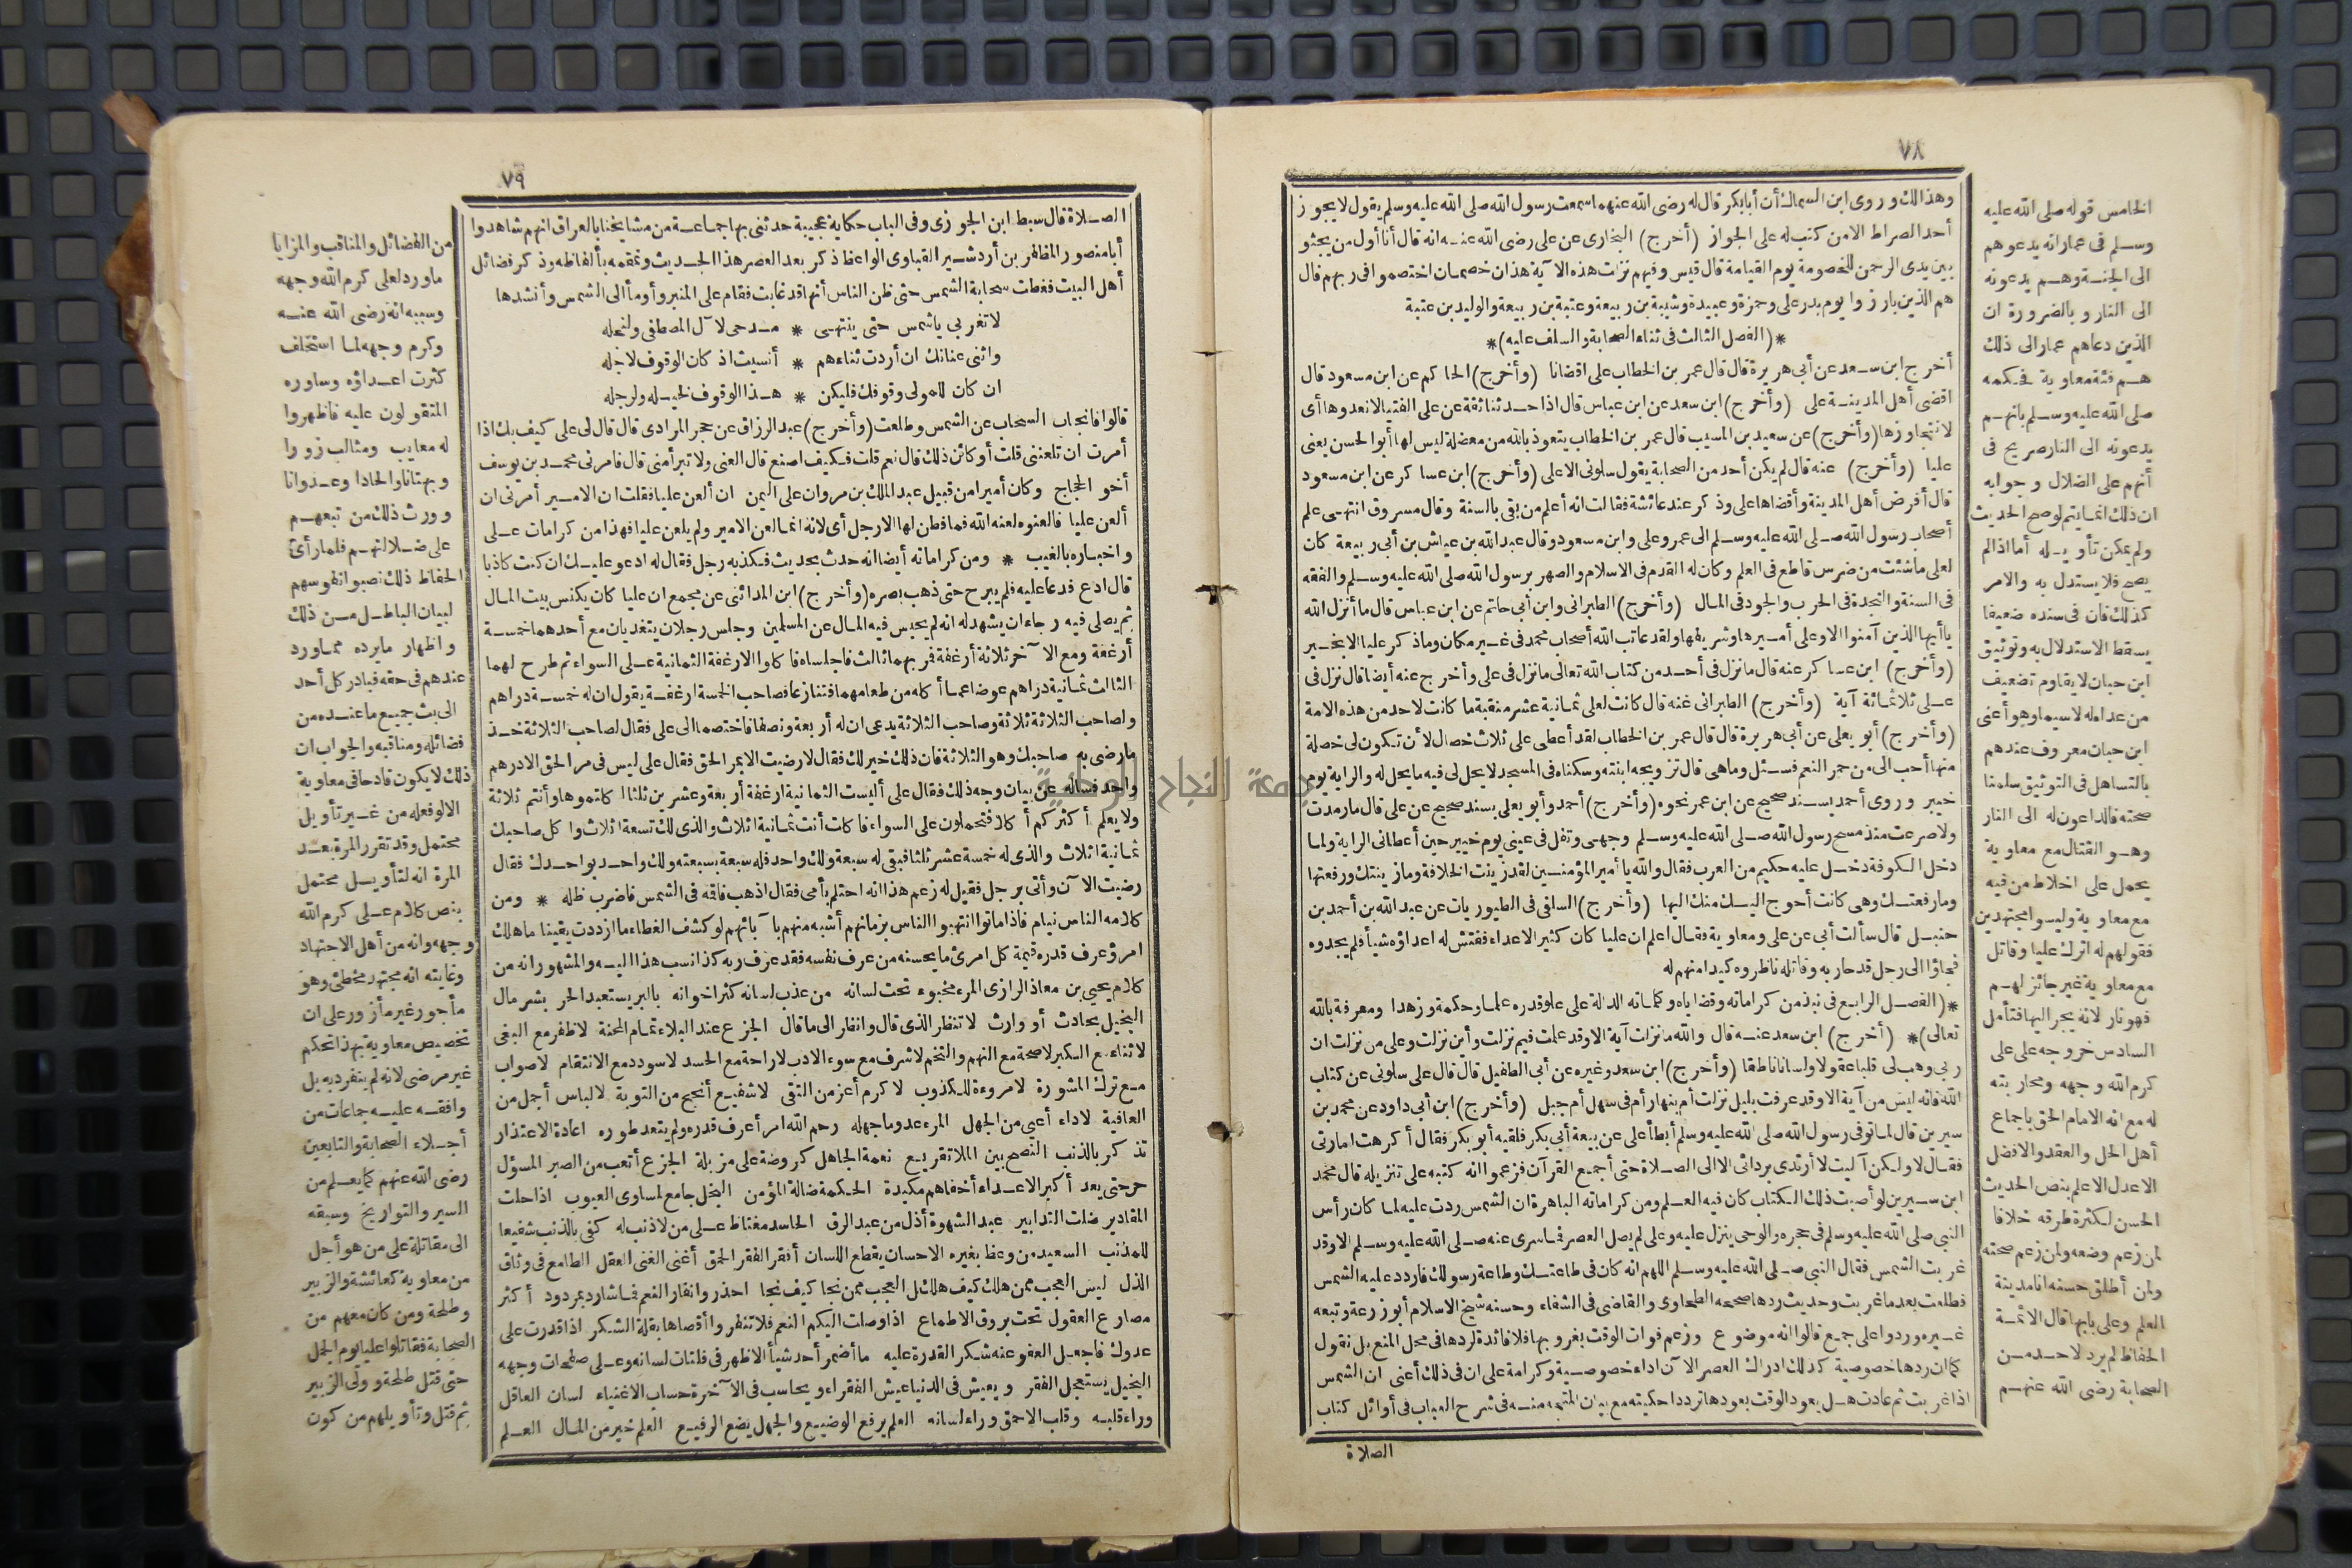 ٧٨
وهذا لك وروى ابن السماك أن أبا بكر قال له رضى الله عنهما سمعت رسول الله صلى الله عليه وسلم يقول لا يجوز
أحد الصراط الا من كتب له على الجواز (أخرج) البخارى عن على رضى الله عنه انه قال أنا أول من يجثو
بين يدى الرحمن للخصومة يوم القيامة قال قيس وفيهم نزلت هذه الآية هذان خصمان اختصموا فى ربهم قال
هم الذين بارزوا يوم بدر على وحمزة وعبيدة وشيبة بن ربيعة وعتبة بن ربيعة والوليد بن عتبة
*(الفصل الثالث فى ثناء الصحابة والسلف عليه)*
أخرج ابن سعد عن أبى هريرة قال قال عمر بن الخطاب على اقضانا (وأخرج) الحاكم عن ابن مسعود قال
اقضى أهل المدينة على (وأخرج) ابن سعد عن ابن عباس قال اذا حدثنا ثقة عن على الفتيا لا نعدوها أى
لا نتجاوزها (وأخرج) عن سعيد بن المسيب قال عمر بن الخطاب يتعوذ بالله من معضلة ليس لها أبو الحسن يعنى
عليا (وأخرج) عنه قال لم يكن أحد من الصحابة يقول سلونى الا على (وأخرج) ابن عساكر عن ابن مسعود
قال أفرض أهل المدينة وأقضاها على وذكر عند عائشة فقالت انه أعلم من بقى بالسنة وقال مسروق انتهى علم
أصحاب رسول الله صلى الله عليه وسلم الى عمر وعلى وابن مسعود وقال عبد الله بن عياش بن أبى ربيعة كان
لعلى ما شئت من ضرس قاطع فى العلم وكان له القدم فى الاسلام والصهر برسول الله صلى الله عليه وسلم والفقه
فى السنة والنجدة فى الحرب والجود فى المال (وأخرج) الطبرانى وابن أبى حاتم عن ابن عباس قال ما أنزل الله
يا أيها الذين آمنوا الا وعلى أميرها وشريفها ولقد عاتب الله أصحاب محمد فى غير مكان وما ذكر عليا الا بخير
(وأخرج) ابن عساكر عنه قال ما نزل فى أحد من كتاب الله تعالى ما نزل فى على وأخرج عنه أيضا قال نزل فى
على ثلاثمائة آية (وأخرج) الطبرانى عنه قال كانت لعلى ثمانية عشر منقبة ما كانت لاحد من هذه الامة
(وأخرج) أبو يعلى عن أبى هريرة قال قال عمر بن الخطاب لقد أعطى على ثلاث خصال لأن تكون لى خصلة
منها أحب الى من حمر النعم فسئل وما هى قال تزويجه ابنته وسكناه فى المسجد لا يحل لى فيه ما يحل له والراية يوم
خيبر وروى أحمد بسند صحيح عن ابن عمر نحوه (وأخرج) أحمد وأبو يعلى بسند صحيح عن على قال ما رمدت
ولا صرعت منذ مسح رسول الله صلى الله عليه وسلم وجهى وتفل فى عينى يوم خيبر حين أعطانى الراية ولما
دخل الكوفة دخل عليه حكيم من العرب فقال والله يا أمير المؤمنين لقد زينت الخلافة وما زينتك ورفعتها
وما رفعتك وهى كانت أحوج اليك منك اليها (وأخرج) السلفى فى الطيوريات عن عبد الله بن أحمد بن
حنبل قال سألت أبى عن على ومعاوية فقال اعلم ان عليا كان كثير الاعداء ففتش له اعداؤه شيأ فلم يجدوه
فجاؤا الى رجل قد حاربه وقاتله فاطروه كيدا منهم له
*(الفصل الرابع فى نبذ من كراماته وقضاياه وكلماته الدالة على علو قدره علما وحكمة وزهدا ومعرفة بالله
تعالى)* (أخرج) ابن سعد عنه قال والله ما نزلت آية الا وقد علمت فيم نزلت وأين نزلت وعلى من نزلت ان
ربى وهب لى قلبا عقولا ولسانا ناطقا (وأخرج) ابن سعد وغيره عن أبى الطفيل قال قال على سلونى عن كتاب
الله فانه ليس من آية الا وقد عرفت بليل نزلت أم بنهار أم فى سهل أم جبل (وأخرج) ابن أبى داود عن محمد بن
سيرين قال لما توفى رسول الله صلى الله عليه وسلم أبطأ على عن بيعة أبى بكر فلقيه أبو بكر فقال أكرهت امارتى
فقال لا ولكن آليت لا أرتدى بردائى الا الى الصلاة حتى أجمع القرآن فزعموا انه كتبه على تنزيله قال محمد
ابن سيرين لو أصبت ذلك الكتاب كان فيه العلم ومن كراماته الباهرة ان الشمس ردت عليه لما كان رأس
النبى صلى الله عليه وسلم فى حجره والوحى ينزل عليه وعلى لم يصل العصر فما سرى عنه صلى الله عليه وسلم الا وقد
غربت الشمس فقال النبى صلى الله عليه وسلم اللهم انه كان فى طاعتك وطاعة رسولك فاردد عليه الشمس
فطلعت بعد ما غربت وحديث ردها صححه الطحاوى والقاضى فى الشفاء وحسنه شيخ الاسلام أبو زرعة وتبعه
غيره وردوا على جمع قالوا انه موضوع وزعم فوات الوقت بغروبها فلا فائدة لردها فى محل المنع بل نقول
كما ان ردها خصوصية كذلك ادراك العصر الآن اداء خصوصية وكرامة على ان فى ذلك أعنى ان الشمس
اذا غربت ثم عادت هل يعود الوقت بعودها ترددا حكيته مع بيان المتجه منه فى شرح العباب فى أوائل كتاب
الصلاة
الخامس قوله صلى الله عليه
وسلم فى عمار انه يدعوهم
الى الجنة وهم يدعونه
الى النار وبالضرورة ان
الذين دعاهم عمار الى ذلك
هم فئة معاوية فحكمه
صلى الله عليه وسلم بانهم
يدعونه الى النار صريح فى
أنهم على الضلال وجوابه
ان ذلك انما يتم لو صح الحديث
ولم يمكن تأويله أما اذا لم
يصح فلا يستدل به والامر
كذلك فان فى سنده ضعيفا
يسقط الاستدلال به وتوثيق
ابن حبان لا يقاوم تضعيف
من عداه له لا سيما وهو أعنى
ابن حبان معروف عندهم
بالتساهل فى التوثيق سلمنا
صحته فالداعون له الى النار
وهو القتال مع معاوية
يحمل على اخلاط من فيه
مع معاوية وليسوا مجتهدين
فقولهم له اترك عليا وقاتل
مع معاوية غير جائز لهم
فهو نار لانه يجر اليها فتأمل
السادس خروجه على على
كرم الله وجهه ومحاربته
له مع انه الامام الحق باجماع
أهل الحل والعقد والافضل
الاعدل الاعلم بنص الحديث
الحسن لكثرة طرقه خلافا
لمن زعم وضعه ولمن زعم صحته
ولمن أطلق حسنه انا مدينة
العلم وعلى بابها قال الأئمة
الحفاظ لم يرد لاحد من
الصحابة رضى الله عنهم
٧٩
الصلاة قال سبط ابن الجوزى وفى الباب حكاية عجيبة حدثنى بها جماعة من مشايخنا بالعراق انهم شاهدوا
أبا منصور المظفر بن أردشير القباوى الواعظ ذكر بعد العصر هذا الحديث ونمقه بألفاظه وذكر فضائل
أهل البيت فغطت سحابة الشمس حتى ظن الناس أنها قد غابت فقام على المنبر وأومأ الى الشمس وأنشدها
لا تغربى يا شمس حتى ينتهى * مدحى لآل المصطفى ولنجله
واثنى عنانك ان أردت ثناءهم * أنسيت اذ كان الوقوف لاجله
ان كان للمولى وقوفك فليكن * هذا الوقوف لخيله ولرجله
قالوا فانجاب السحاب عن الشمس وطلعت (وأخرج) عبد الرزاق عن حجر المرادى قال قال لى على كيف بك اذا
أمرت ان تلعننى قلت أو كائن ذلك قال نعم قلت فكيف اصنع قال العنى ولا تبرأ منى قال فامرنى محمد بن يوسف
أخو الحجاج وكان أميرا من قبيل عبد الملك بن مروان على اليمن ان ألعن عليا فقلت ان الامير أمرنى ان
ألعن عليا فالعنوه لعنه الله فما فطن لها الا رجل أى لانه انما لعن الامير ولم يلعن عليا فهذا من كرامات على
واخباره بالغيب * ومن كراماته أيضا انه حدث بحديث فكذبه رجل فقال له ادعو عليك ان كنت كاذبا
قال ادع فدعا عليه فلم يبرح حتى ذهب بصره (وأخرج) ابن المدائنى عن مجمع ان عليا كان يكنس بيت المال
ثم يصلى فيه رجاء ان يشهد له انه لم يحبس فيه المال عن المسلمين وجلس رجلان يتغديان مع أحدهما خمسة
أرغفة ومع الآخر ثلاثة أرغفة فمر بهما ثالث فاجلساه فاكلوا الارغفة الثمانية على السواء ثم طرح لهما
الثالث ثمانية دراهم عوضا عما أكله من طعامهما فتنازعا فصاحب الخمسة ارغفة يقول ان له خمسة دراهم
ولصاحب الثلاثة ثلاثة وصاحب الثلاثة يدعى ان له أربعة ونصفا فاختصما الى على فقال لصاحب الثلاثة خذ
ما رضى به صاحبك وهو الثلاثة فان ذلك خير لك فقال لا رضيت الا بمر الحق فقال على ليس فى مر الحق الا درهم
واحد فسأله عن بيان وجه ذلك فقال على أليست الثمانية ارغفة أربعة وعشرين ثلثا اكلتموها وأنتم ثلاثة
ولا يعلم أكثركم أكلا فتحملون على السواء فاكلت أنت ثمانية اثلاث والذى لك تسعة اثلاث وأكل صاحبك
ثمانية اثلاث والذى له خمسة عشر ثلثا فبقى له سبعة ولك واحد فله سبعة بسبعته ولك واحد بواحدك فقال
رضيت الآن وأتى برجل فقيل له زعم هذا انه احتلم بأمى فقال اذهب فاقه فى الشمس فاضرب ظله * ومن
كلامه الناس نيام فاذا ماتوا انتبهوا الناس بزمانهم أشبه منهم بآبائهم لو كشف الغطاء ما ازددت يقينا ما هلك
امرؤ عرف قدره قيمة كل امرئ ما يحسنه من عرف نفسه فقد عرف ربه كذا نسب هذا اليه والمشهور انه من
كلام يحيى بن معاذ الرازى المرء مخبوء تحت لسانه من عذب لسانه كثر اخوانه بالبر يستعبد الحر بشر مال
البخيل بحادث أو وارث لا تنظر الذى قال وانظر الى ما قال الجزع عند البلاء تمام المحنة لا ظفر مع البغى
لا ثناء مع الكبر لا صحة مع النهم والتخم لا شرف مع سوء الادب لا راحة مع الحسد لا سودد مع الانتقام لا صواب
مع ترك المشورة لا مروءة للكذوب لا كرم أعز من التقى لا شفيع أنجح من التوبة لا لباس أجمل من
العافية لا داء أعيى من الجهل المرء عدو ما جهله رحم الله امرأ عرف قدره ولم يتعد طوره اعادة الاعتذار
تذكر بالذنب النصح بين الملا تقريع نعمة الجاهل كروضة على مزبلة الجزع أتعب من الصبر المسؤل
حر حتى يعد أكبر الاعداء أخفاهم مكيدة الحكمة ضالة المؤمن البخل جامع لمساوى العيوب اذا حلت
المقادير ضلت التدابير عبد الشهوة أذل من عبد الرق الحاسد مغتاظ على من لا ذنب له كفى بالذنب شفيعا
للمذنب السعيد من وعظ بغيره الاحسان يقطع اللسان أفقر الفقر الحمق أغنى الغنى العقل الطامع فى وثاق
الذل ليس العجب ممن هلك كيف هلك بل العجب ممن نجا كيف نجا احذروا نفار النعم فما شارد بمردود أكثر
مصارع العقول تحت بروق الاطماع اذا وصلت اليكم النعم فلا تنفروا أقصاها بقلة الشكر اذا قدرت على
عدوك فاجعل العفو عنه شكر القدرة عليه ما أضمر أحد شيأ الا ظهر فى فلتات لسانه وعلى صفحات وجهه
البخيل يستعجل الفقر ويعيش فى الدنيا عيش الفقراء ويحاسب فى الآخرة حساب الاغنياء لسان العاقل
وراء قلبه وقلب الاحمق وراء لسانه العلم يرفع الوضيع والجهل يضع الرفيع العلم خير من المال العلم
من الفضائل والمناقب والمزايا
ما ورد لعلى كرم الله وجهه
وسببه انه رضى الله عنه
وكرم وجهه لما استخلف
كثرت اعداؤه وساوره
المتقولون عليه فاظهروا
له معايب ومثالب زورا
وبهتانا والحادا وعدوانا
وورث ذلك من تبعهم
على ضلالتهم فلما رأى
الحفاظ ذلك نصبوا نفوسهم
لبيان الباطل من ذلك
واظهار ما يرده مما ورد
عندهم فى حقه فبادر كل أحد
الى بث جميع ما عنده من
فضائله ومناقبه والجواب ان
ذلك لا يكون قادحا فى معاوية
الا لو فعله من غير تأويل
محتمل وقد تقرر المرة بعد
المرة انه لتأويل محتمل
بنص كلام على كرم الله
وجهه وانه من أهل الاجتهاد
وغايته انه مجتهد مخطئ وهو
مأجور غير مأزور على ان
تخصيص معاوية بهذا تحكم
غير مرضى لانه لم ينفرد به بل
وافقه عليه جماعات من
أجلاء الصحابة والتابعين
رضى الله عنهم كما يعلم من
السير والتواريخ وسبقه
الى مقاتلة على من هو أجل
من معاوية كعائشة والزبير
وطلحة ومن كان معهم من
الصحابة فقاتلوا عليا يوم الجمل
حتى قتل طلحة وولى الزبير
ثم قتل وتأويلهم من كون